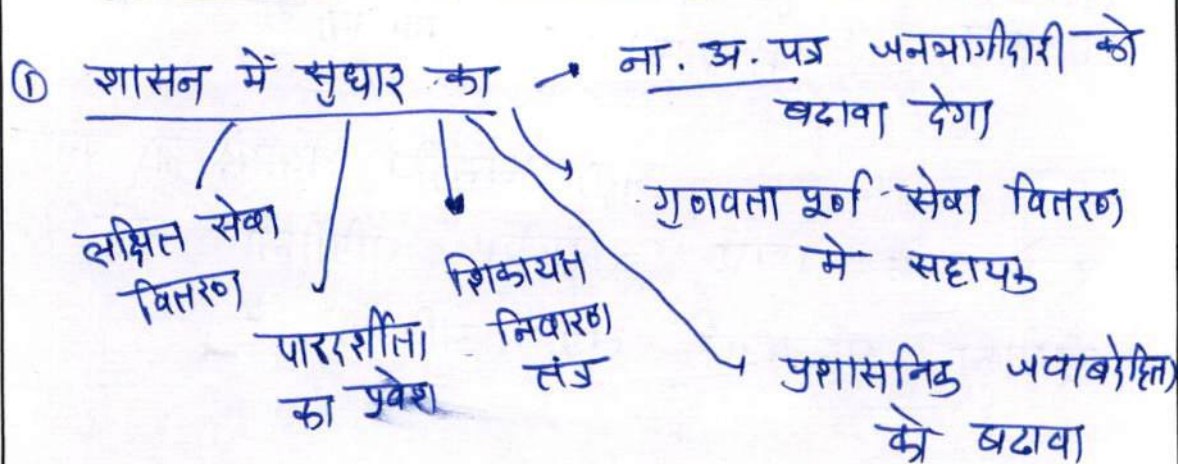 ① शासन में सुधार का → ना. अ. पत्र जनभागीदारी को
बढावा देगा
गुणवता पूर्ण सेवा वितरण
मे सहायक
लक्षित सेवा
वितरण
पारदर्शीता
का प्रवेश
शिकायत
निवारण
तंत्र
प्रशासनिक जवाबदेहिता
को बढावा